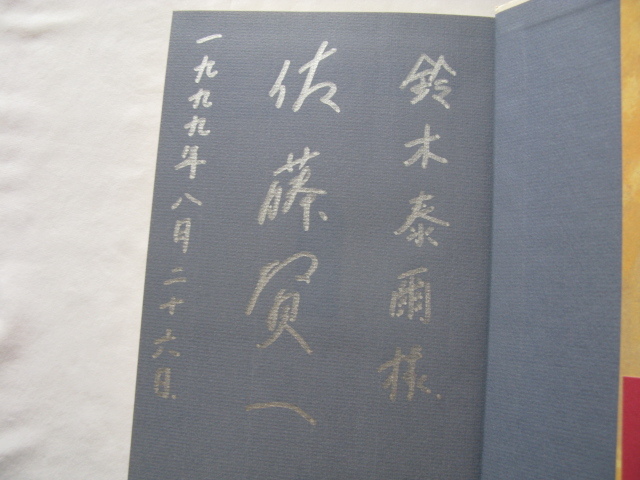 鈴木泰爾様
佐藤賢一
一九九九年八月二十六日